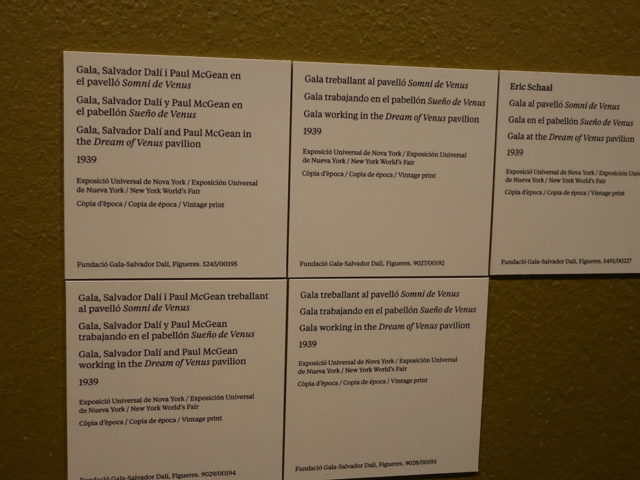 Gala, Salvador Dalí i Paul McGean en
el pavelló Somni de Venus
Gala, Salvador Dalí y Paul McGean en
el pabellón Sueño de Venus
Gala, Salvador Dalí and Paul McGean in
the Dream of Venus pavilion
1939
Exposició Universal de Nova York / Exposición Universal
de Nueva York / New York World's Fair
Còpia d'època / Copia de época / Vintage print
Fundació Gala-Salvador Dalí, Figueres. 5245/00195
Gala treballant al pavelló Somni de Venus
Gala trabajando en el pabellón Sueño de Venus
Gala working in the Dream of Venus pavilion
1939
Exposició Universal de Nova York / Exposición Universal
de Nueva York / New York World's Fair
Còpia d'època / Copia de época / Vintage print
Fundació Gala-Salvador Dalí, Figueres. 9027/00192
Eric Schaal
Gala al pavelló Somni de Venus
Gala en el pabellón Sueño de Venus
Gala at the Dream of Venus pavilion
1939
Exposició Universal de Nova York / Exposición
de Nueva York / New York World's Fair
Còpia d'època / Copia de época / Vintage print
Fundació Gala-Salvador Dalí, Figueres. 5491/00227
Gala, Salvador Dalí i Paul McGean treballant
al pavelló Somni de Venus
Gala, Salvador Dalí y Paul McGean
trabajando en el pabellón Sueño de Venus
Gala, Salvador Dalí and Paul McGean
working in the Dream of Venus pavilion
1939
Exposició Universal de Nova York / Exposición Universal
de Nueva York / New York World's Fair
Còpia d'època / Copia de época / Vintage print
Fundació Gala-Salvador Dalí, Figueres. 9029/00194
Gala treballant al pavelló Somni de Venus
Gala trabajando en el pabellón Sueño de Venus
Gala working in the Dream of Venus pavilion
1939
Exposició Universal de Nova York / Exposición Universal
de Nueva York / New York World's Fair
Còpia d'època / Copia de época / Vintage print
Fundació Gala-Salvador Dalí, Figueres. 9028/00193